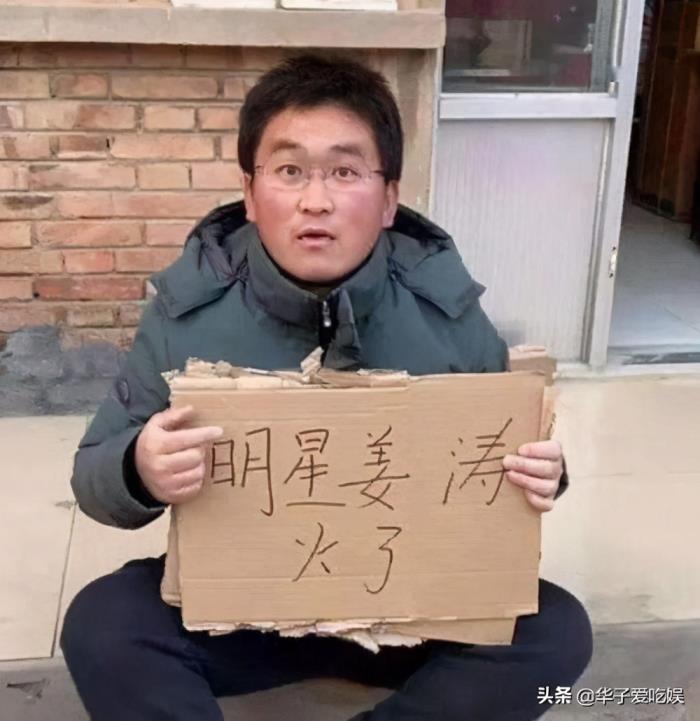 明星姜涛
火了
头条 @华子爱吃娱